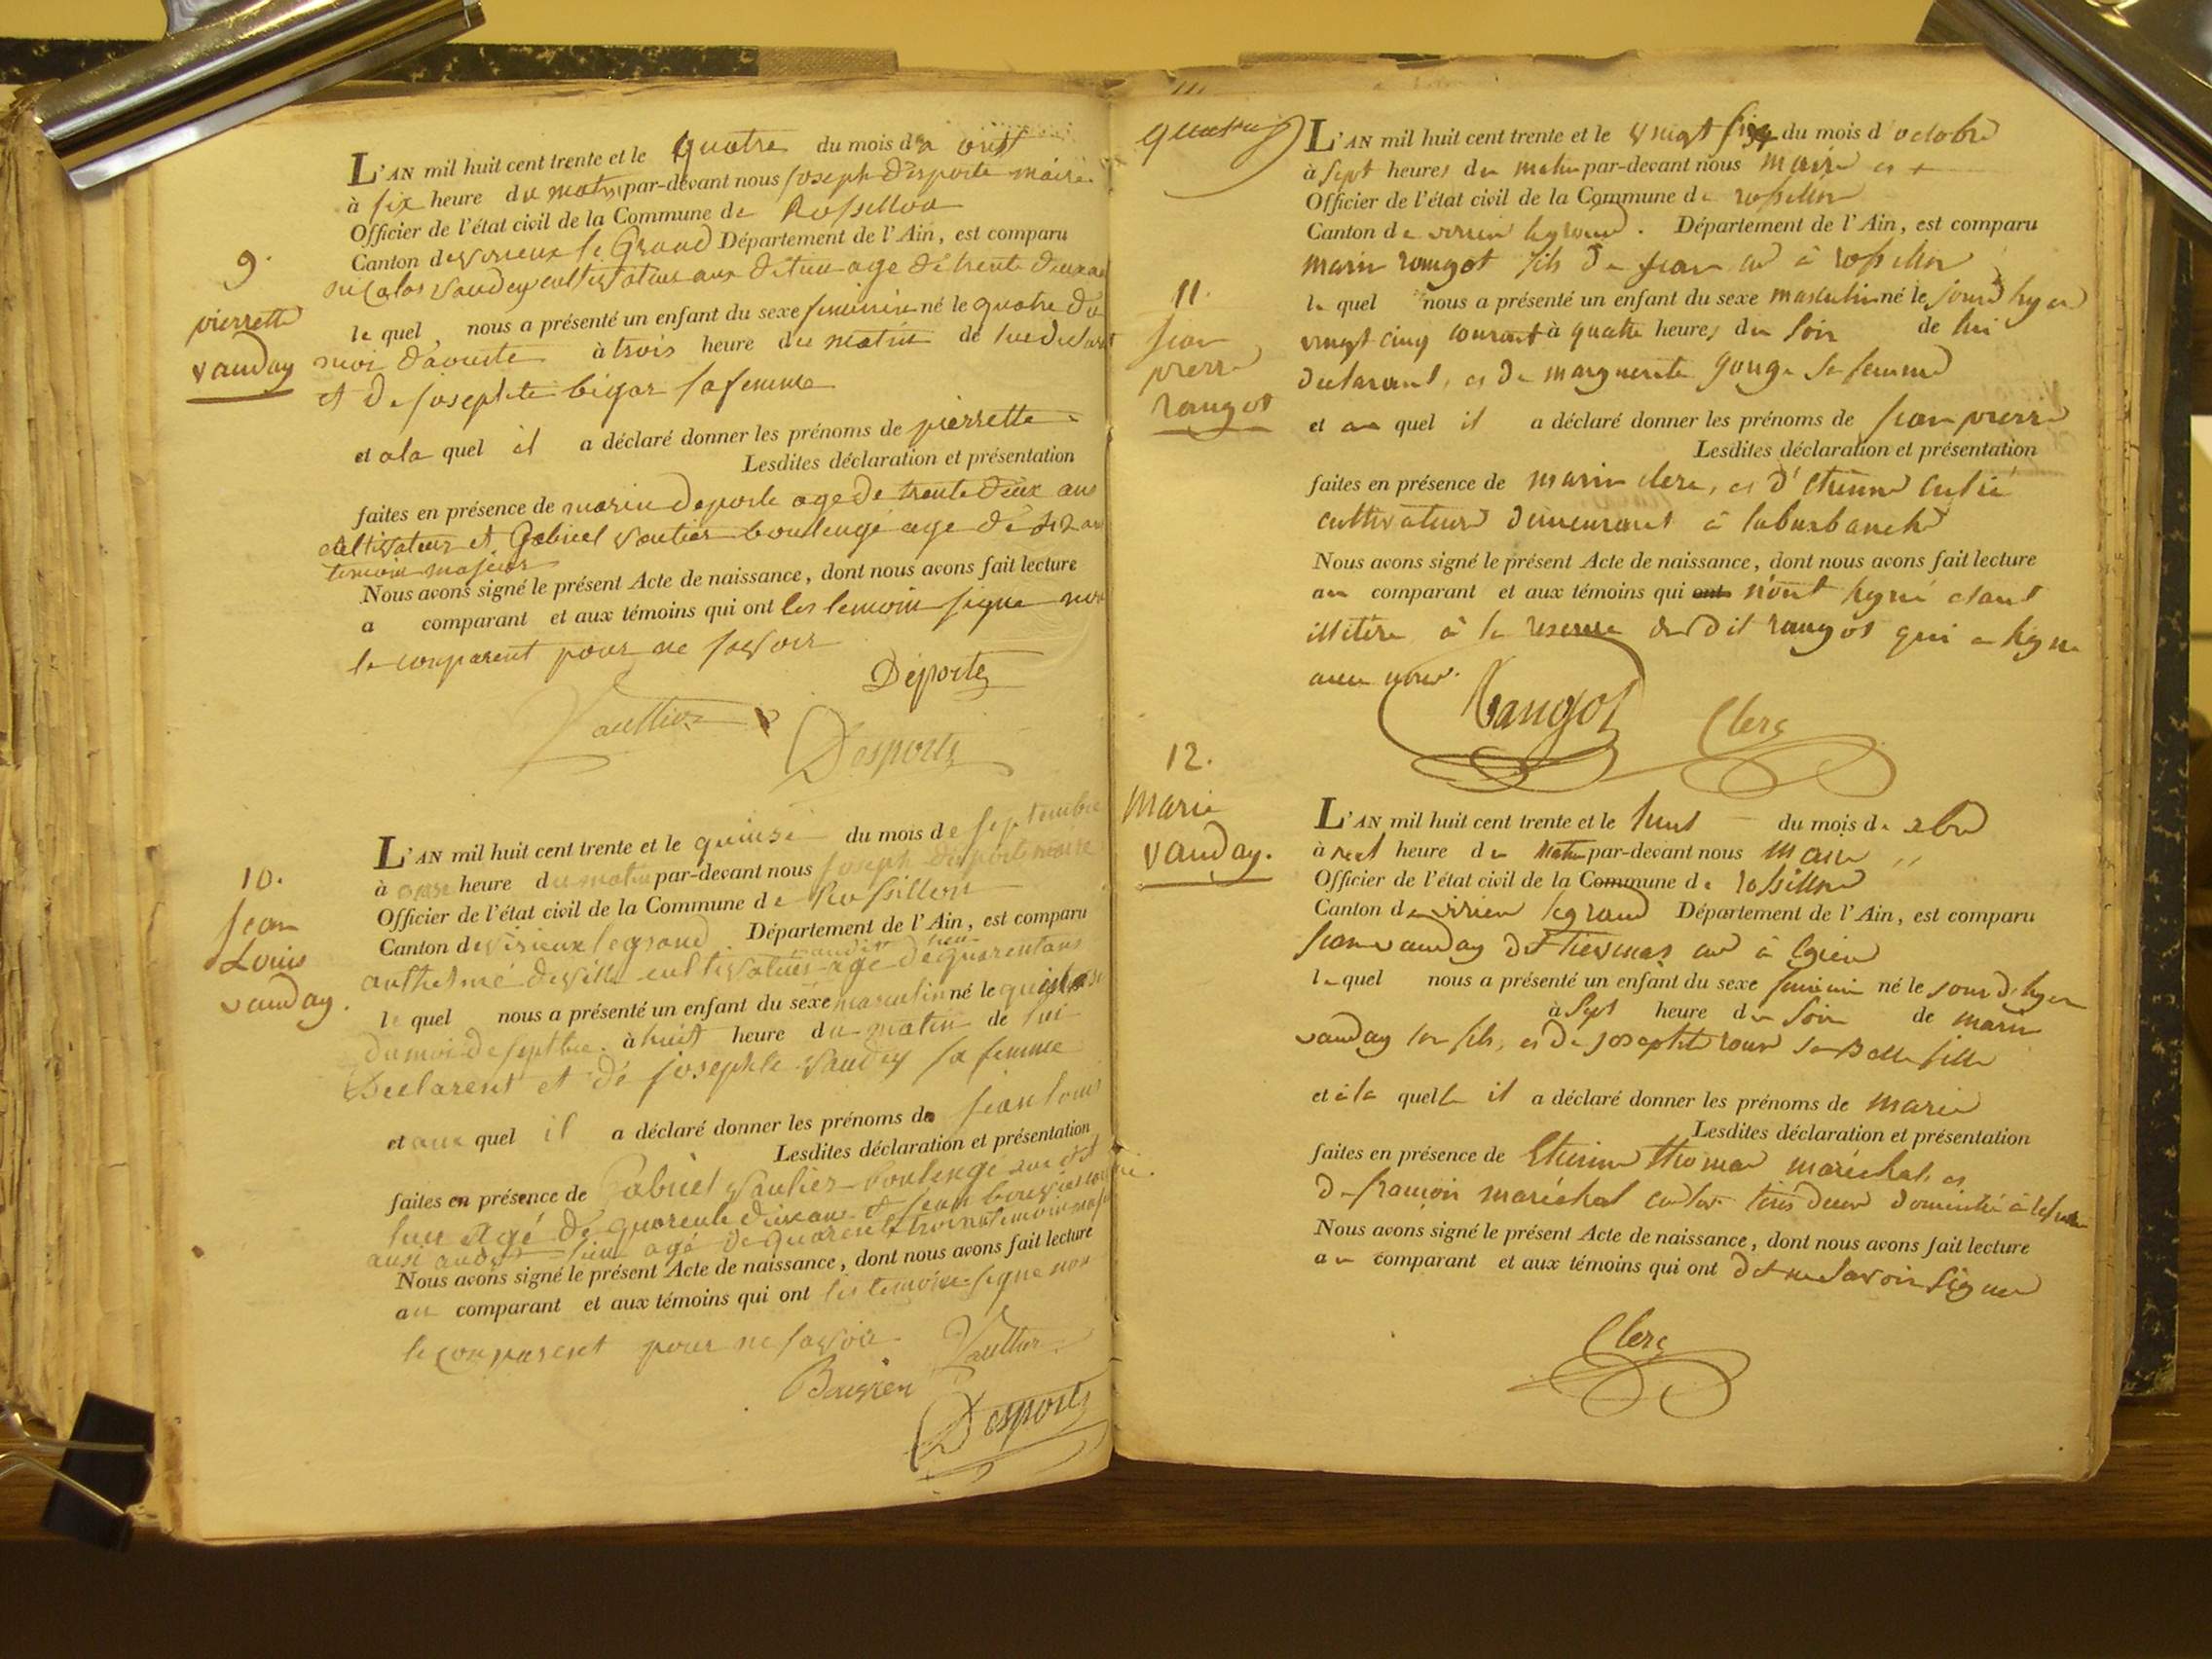 9.
pierrette
vauday
L'AN mil huit cent trente et le quatre du mois d'a oust
à six heure du matin par-devant nous joseph desporte maire
Officier de l'état civil de la Commune de Rossillon
Canton de virieux le Grand Département de l'Ain, est comparu
nicolas vauday cultivateur age de trente deux
le quel nous a présenté un enfant du sexe feminin né le quatre du
moi d'aouste à trois heure du matin de
et de josephte bigar sa femme
et a la quel il a déclaré donner les prénoms de pierrette
Lesdites déclaration et présentation
faites en présence de marin deporte age de trente deux ans
cultivateur et Gabriel vautier boulengé age de 42 an
temoin majeur
Nous avons signé le présent Acte de naissance, dont nous avons fait lecture
a comparant et aux témoins qui ont les temoin signe non
le comparent pour ne savoir
Déporte
Vaultier
Desporte
10.
jean
Louis
vauday.
L'AN mil huit cent trente et le quinse du mois de septembre
à onse heure du matin par-devant nous joseph desporte maire
Officier de l'état civil de la Commune de Rossillon
Canton de virieux le grand. Département de l'Ain, est comparu
cultivateur age de quarent ans
le quel nous a présenté un enfant du sexe masculin né le quinse
du moi de septbre. à huit heure du matin de lui
Declarent et de josephte vauday sa femme
et aux quel il a déclaré donner les prénoms de jean louis
Lesdites déclaration et présentation
faites en présence de Gabriel vautier boulengé au dit
lieu agé de quarente deux an et jean bouvier
ausi audit lieu agé de quarente trois an temoin
Nous avons signé le présent Acte de naissance, dont nous avons fait lecture
au comparant et aux témoins qui ont les temoin signe non
le comparent pour ne savoir
Vaultier
Desporte
11.
jean
pierre
rangot
L'AN mil huit cent trente et le vingt six du mois d'octobre
à sept heures du matin par-devant nous maire et
Officier de l'état civil de la Commune de rossillon
Canton de virieu legrand. Département de l'Ain, est comparu
marin rangot fils de jean à rossillon
le quel nous a présenté un enfant du sexe masculin né le jour d'hyer
vingt cinq courant à quatre heures du soir de lui
declarant, et de marguerite gouge sa femme
et au quel il a déclaré donner les prénoms de jean pierre
Lesdites déclaration et présentation
faites en présence de marin clerc, et d'etienne
cultivateurs demeurant à laburbanche
Nous avons signé le présent Acte de naissance, dont nous avons fait lecture
au comparant et aux témoins qui ont n'ont signé etant
illitere à la reserve dudit rangot qui a signe
avec nous.
Rangot
Clerc
12.
Marie
vauday.
L'AN mil huit cent trente et le huit du mois de
à heure du Matin par-devant nous Maire
Officier de l'état civil de la Commune de rossillon
Canton de virieu legrand Département de l'Ain, est comparu
jean vauday
le quel nous a présenté un enfant du sexe feminin né le jour d'hyer
à sept heure du soir de marin
vauday son fils, et de josephte sa Belle fille
et a la quelle il a déclaré donner les prénoms de marie
Lesdites déclaration et présentation
faites en présence de Etienne thomas maréchal, et
de françois maréchal
Nous avons signé le présent Acte de naissance, dont nous avons fait lecture
au comparant et aux témoins qui ont dit ne savoir signer
Clerc